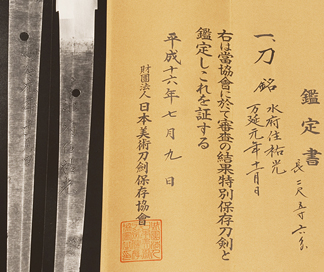 鑑定書
一、刀 銘 水府住祐光
万延元年十一月日
長二尺五寸六分
右は當協會に於て審査の結果特別保存刀剣と
鑑定しこれを証する
平成十六年七月九日
財團法人 日本美術刀剣保存協會